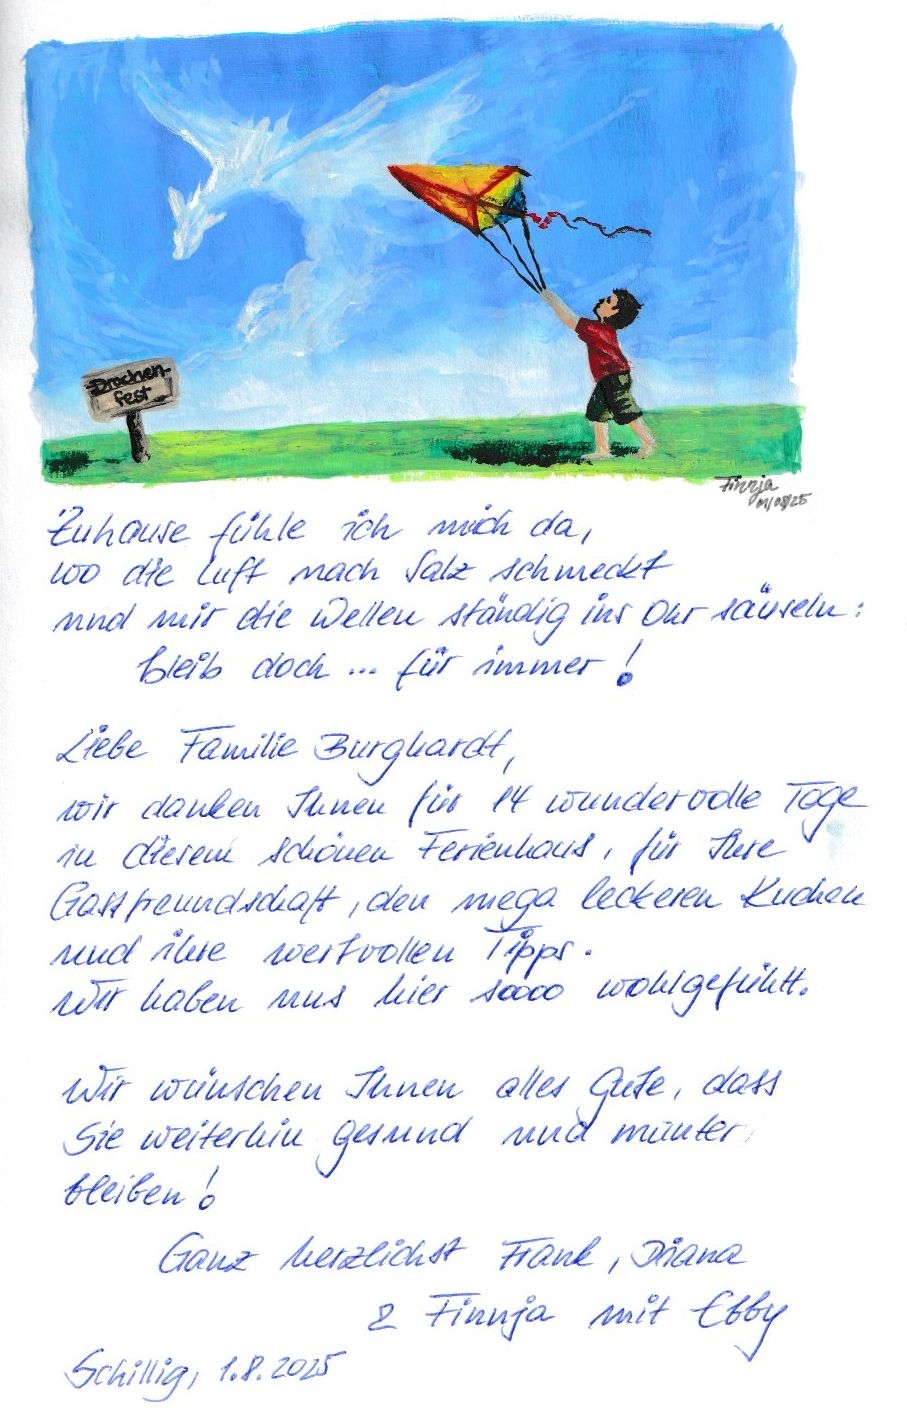 Drachen-
fest
Finnja
01/08/25
Zuhause fühle ich mich da,
wo die Luft nach Salz schmeckt
und mir die Wellen ständig ins Ohr säuseln:
bleib doch ... für immer!
Liebe Familie Burghardt,
wir danken Ihnen für 14 wundervolle Tage
in diesem schönen Ferienhaus, für Ihre
Gastfreundschaft, den mega leckeren Kuchen
und ihre wertvollen Tipps.
Wir haben uns hier soooo wohlgefühlt.
Wir wünschen Ihnen alles Gute, dass
Sie weiterhin gesund und munter
bleiben!
Ganz herzlichst Frank, Diana
& Finnja mit Ebby
Schillig, 1.8.2025